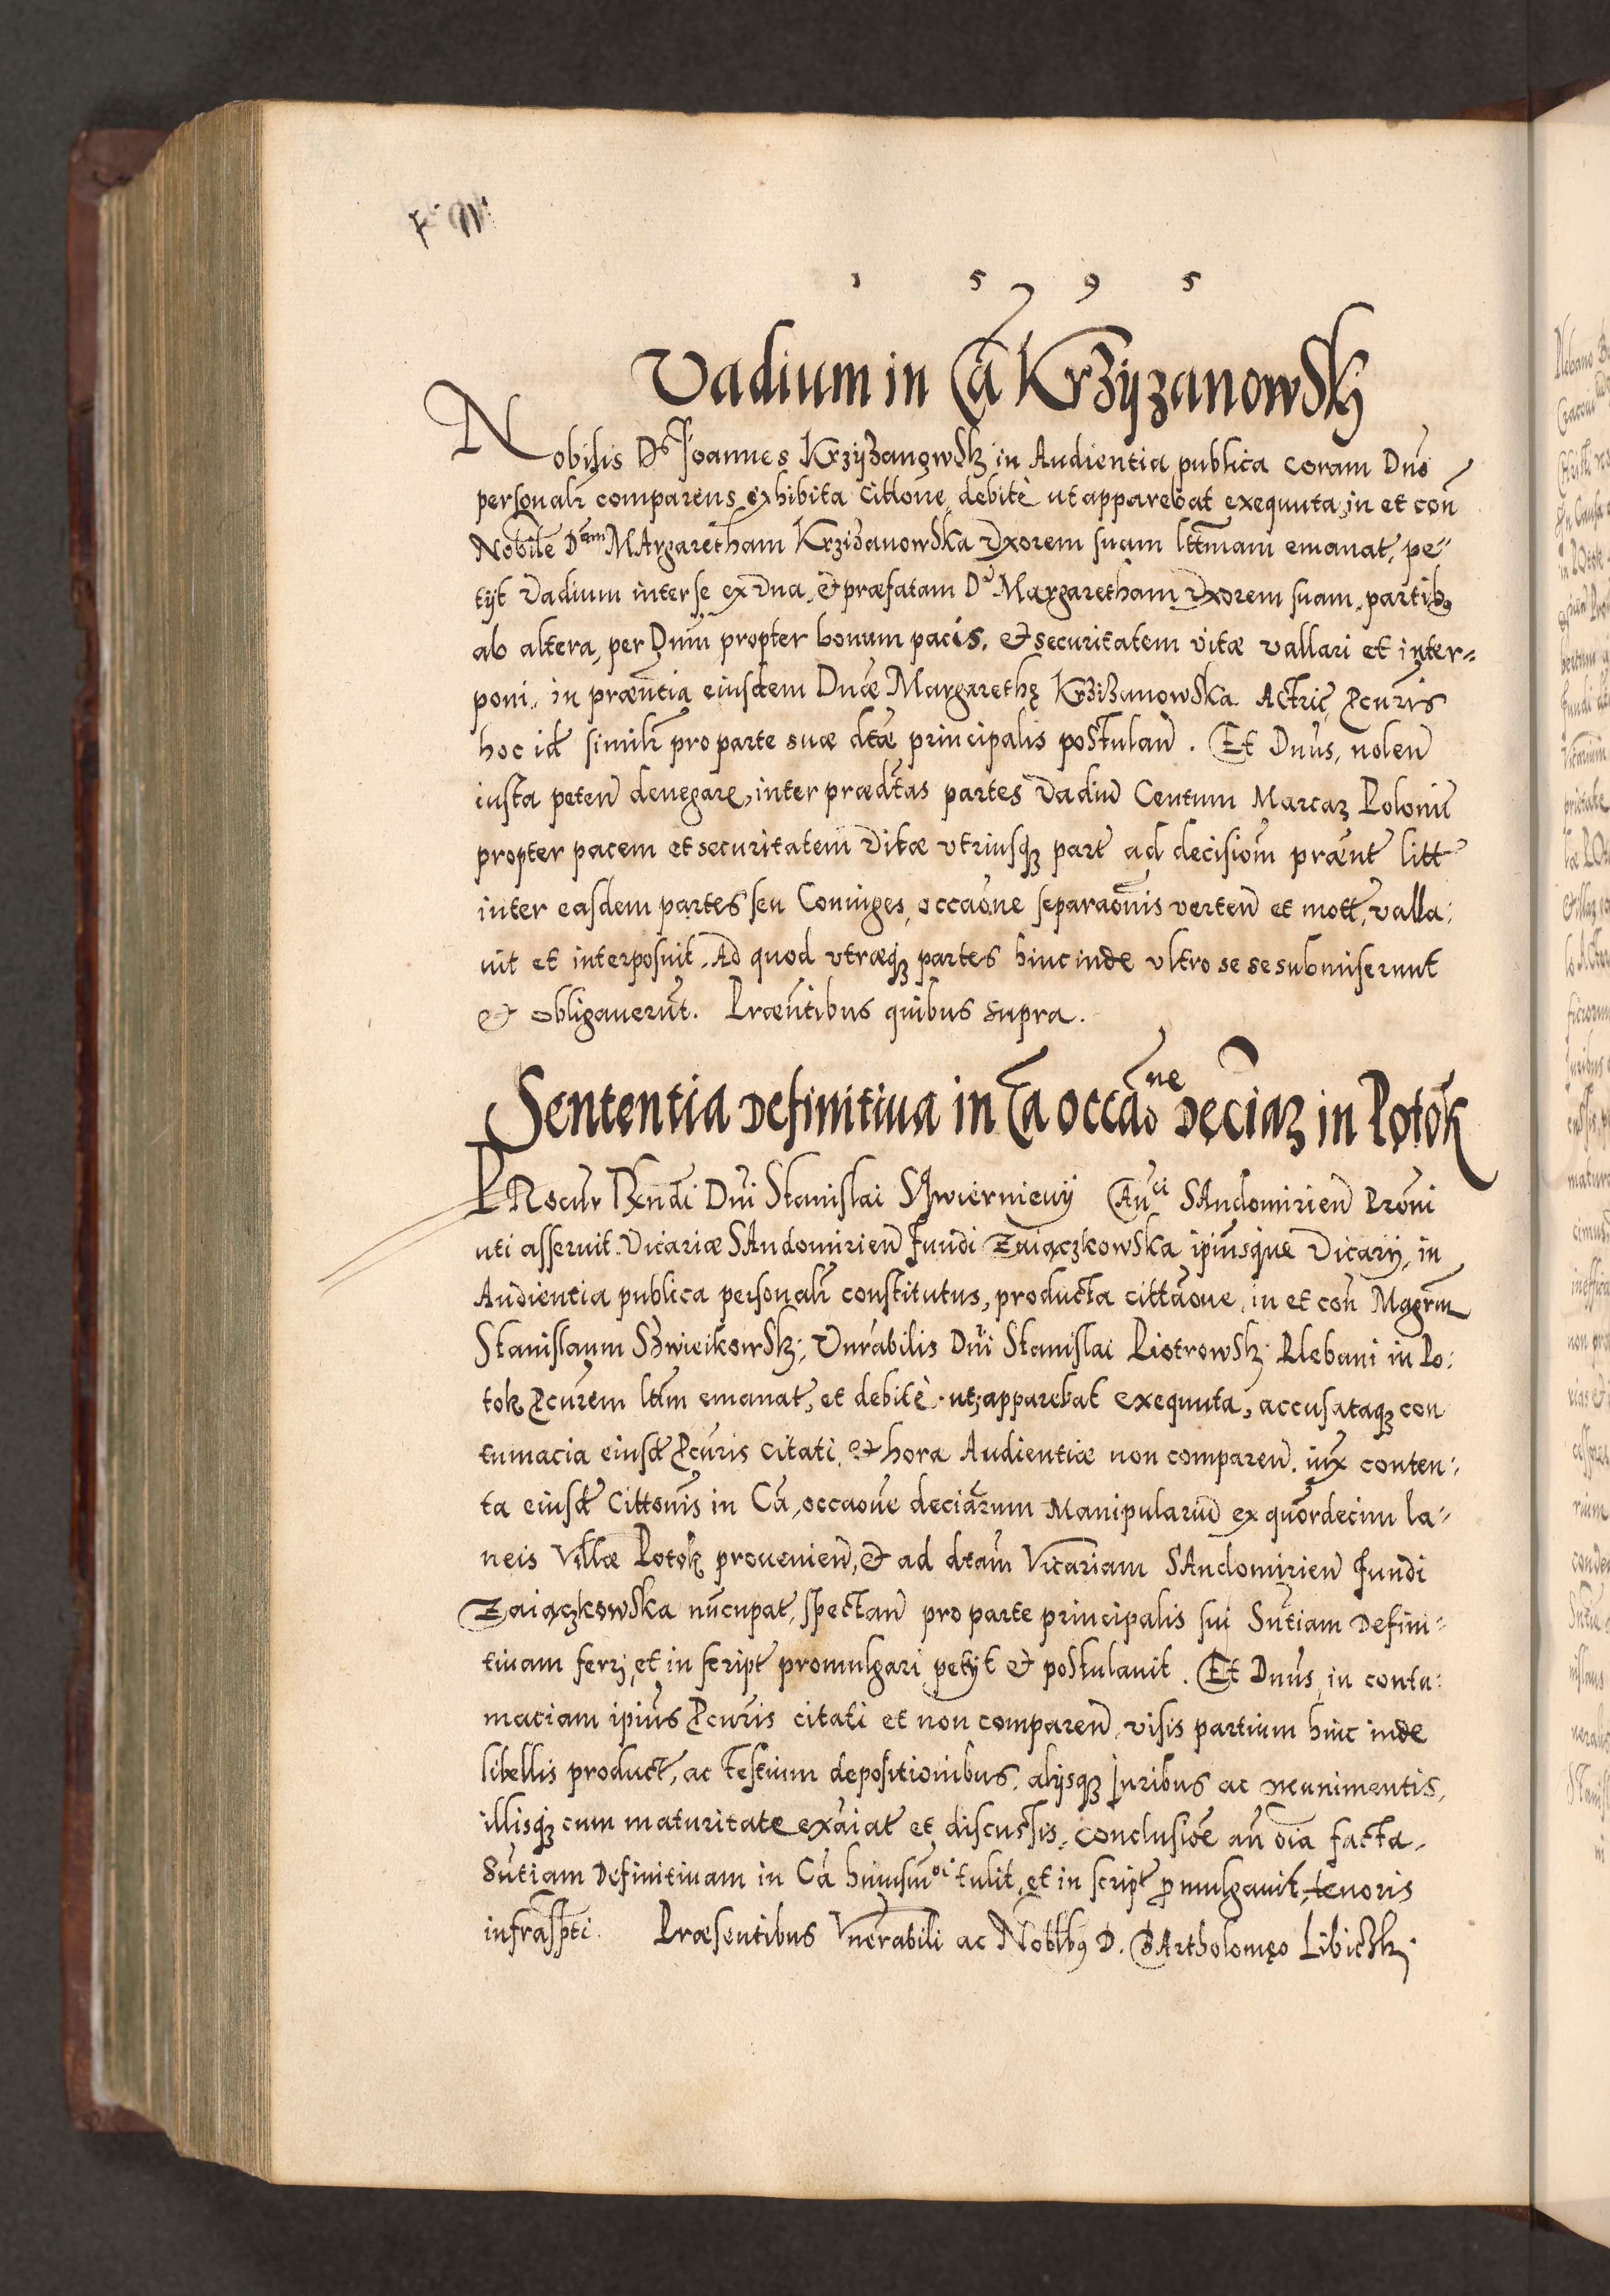 1 5 9 5
Vadium in Cā Krzÿzanowsk
Nobilis Ds Joannes Krzÿzanowsk in Audientia publica coram Dno
personalr comparens exhibita cittone, debitè ut apparebat exequuta, in et con
Nobile Dnam MArgaretham Krzizanowska Vxorem suam lttmam emanat, pe=
tÿt Vadium inter se ex vna, & præfatam Da Margaretham Vxorem suam, partibq
ab altera, per Dnm propter bonum pacis, & securitatem vitæ vallari et inter=
poni, in præntia eiusdem Dnæ Margarethę Krzizanowska Actric, Pcuris
hoc id similr pro parte suæ dtæ principalis postulan. Et Dnus, nolen
iusta peten denegare, inter prædtas partes Vadiū Centum Marcaz Poloniū
propter pacem et securitatem Vitæ vtriusqz part ad decisiom prænt litt
inter easdem partes seu Coniuges, occaone separaonis verten et mott, valla:
uit et interposuit. Ad quod vtræqz partes hinc inde vltro se se submiserunt
& obligauerūt. Præntibus quibus supra.
Sententia Definitiua in Cā occaone Deciaz in Potok
PRocur Rxndi Dni Stanislai Skwierniewÿ Canci SAndomirien Proui
uti asseruit. Vicariæ SAndomirien fundi Zaiączkowska ipiusque Vicarÿ, in
Audientia publica personalr constitutus, producta cittāone, in et con Magrm
Stanislaum Szwieikowsk, Vnrabilis Dni Stanislai Piotrowsk Plebani in Po:
tok Pcurem ltm emanat, et debitè, utapparebat exequuta, accusataqz con
tumacia eiusd Pcuris Citati, & hora Audientiæ non comparen. iux conten:
ta eiusd Cittonis in Cā, occaone deciarum Manipularū ex quordecim la=
neis Villæ Potok prouenien, & ad dtam Vicariam SAndomirien fundi
Zaiączkowska nūcupat, spectan pro parte principalis sui Sntiam Defini=
tiuam ferri, et in script promulgari petÿt & postulauit. Et Dnus, in conta:
maciam ipius Pcuris citati et non comparen, visis partium hinc inde
libellis product, ac testium depositionibus, alÿsqz Juribus ac Munimentis,
illisqz cum maturitate exāiat et discussis, conclusiōe an oia facta,
Sntiam Definitiuam in Cā huiusmoi tulit, et in script promulgauit, tenoris
infrasPti. Præsentibus Vnerabili ac Noblbq D. BArtholomęo Libicsk